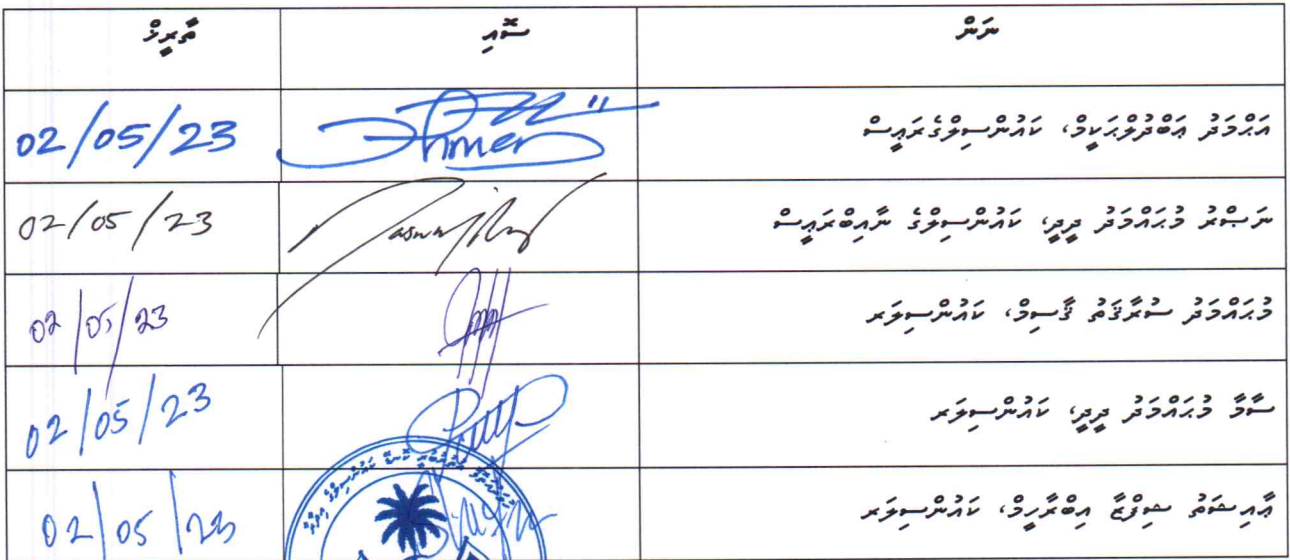 ނަން ސޮއި ތާރީޚް
އަޙްމަދު ޢަބްދުލްޙަކީމް، ކައުންސިލްގެރައީސް 02/05/23
ނަޞްރު މުޙައްމަދު ދީދީ، ކައުންސިލްގެ ނާއިބްރައީސް 02/05/23
މުޙައްމަދު ސުރާޤަތު ޤާސިމް، ކައުންސިލަރ 02/05/23
ސާމާ މުޙައްމަދު ދީދީ، ކައުންސިލަރ 02/05/23
ޢާއިޝަތު ޝިފްޒާ އިބްރާހީމް، ކައުންސިލަރ 02/05/23